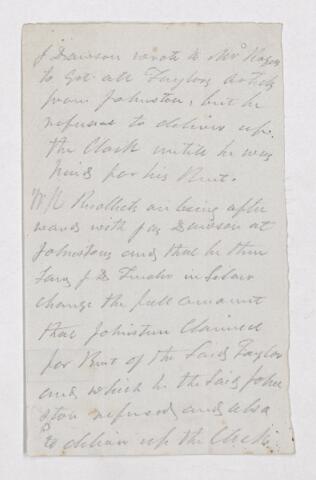 J Dawson wrote to Mr Rogers
to Get all Taylors Articles
from Johnston, but he
refused to deliver up
the Clock untill he was
paid for his Rent.
W R Recollects on being after
wards with Jas Dawson at
Johnstons and that he then
saw J D Tender in Silver
change the full amount
that Johnston Claimed
for Rent of the Said Taylor
and which he the Said John
ston refused and also
to deliver up the Clock.